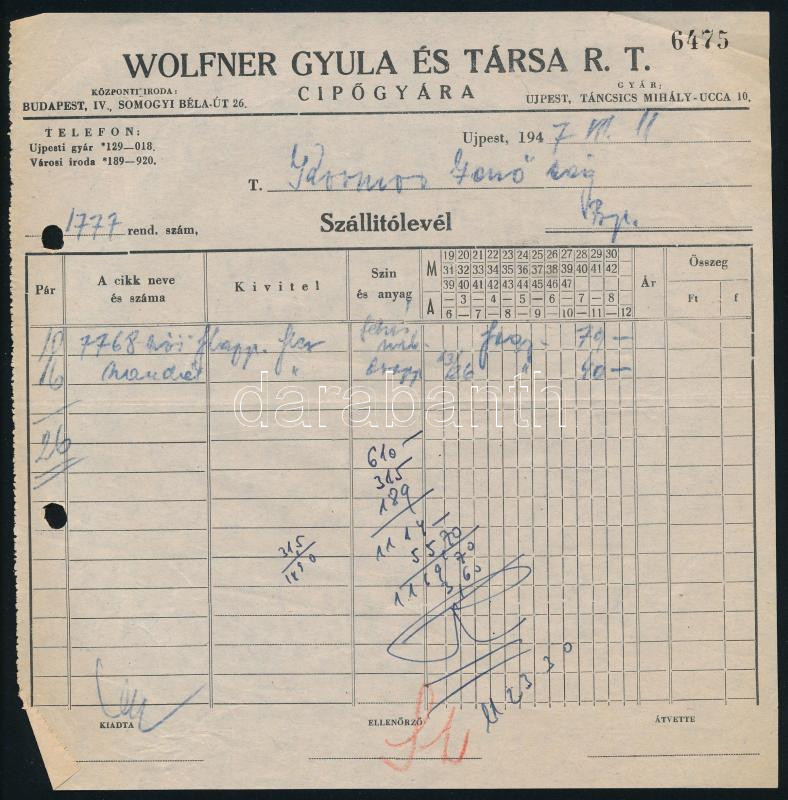 6475
WOLFNER GYULA ÉS TÁRSA R. T.
KÖZPONTI IRODA:
BUDAPEST, IV., SOMOGYI BÉLA-ÚT 26.
CIPŐGYÁRA
GYÁR:
UJPEST, TÁNCSICS MIHÁLY-UCCA 10.
TELEFON:
Ujpesti gyár *129—018.
Városi iroda *189—920.
Ujpest, 194 7 VII. 11
T. Jenő
Bp.
1777 rend. szám,
Szállitólevél
Pár
A cikk neve és száma
Kivitel
Szin és anyag
M 19 20 21 22 23 24 25 26 27 28 29 30
31 32 33 34 35 36 37 38 39 40 41 42
39 40 41 42 43 44 45 46 47
A — 3 — 4 — 5 — 6 — 7 — 8 —
6 — 7 — 8 — 9 — 10 — 11 — 12
Ár
Összeg
Ft f
10 7768 női 79 —
16 " " 40 —
26
610 —
315
189
1114 —
55,70
1169,70
3,60
315
1890
11 23 30
KIADTA
ELLENŐRZŐ
ÁTVETTE
darabanth